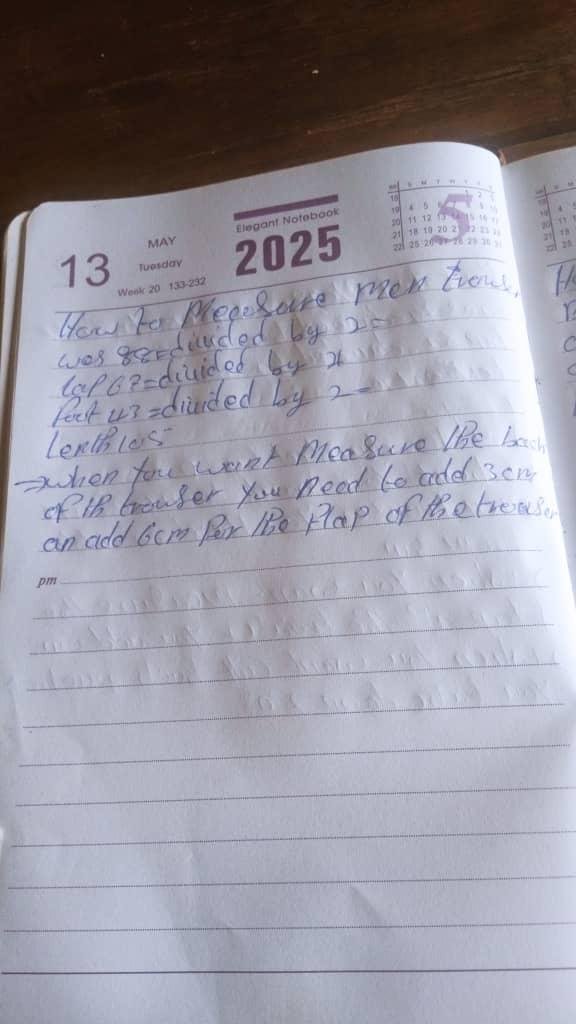 13
MAY
Tuesday
Week 20 133-232
Elegant Notebook
2025
5
How to Meaesure men trous,
was 88=divided by 2=
lap 67=divided by 2
foot 43=divided by 2=
Lenth 105
→when you want measure the back
of th trouser you need to add 3cm
an add 6cm for the flap of the trouser
pm